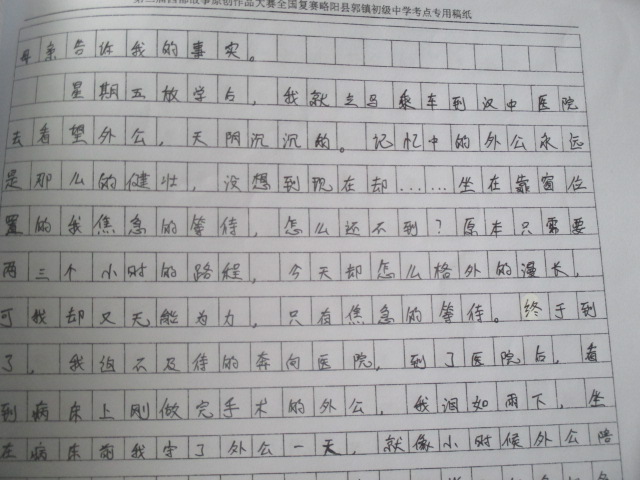 第三届西部故事原创作品大赛全国复赛略阳县郭镇初级中学考点专用稿纸
母亲告诉我的事实。
星期五放学后，我就立马乘车到汉中医院
去看望外公，天阴沉沉的。记忆中的外公永远
是那么的健壮，没想到现在却……坐在靠窗位
置的我焦急的等待，怎么还不到？原本只需要
两三个小时的路程，今天却怎么格外的漫长，
可我却又无能为力，只有焦急的等待。终于到
了，我迫不及待的奔向医院，到了医院后，看
到病床上刚做完手术的外公，我泪如雨下，坐
在病床前我守了外公一天，就像小时候外公陪